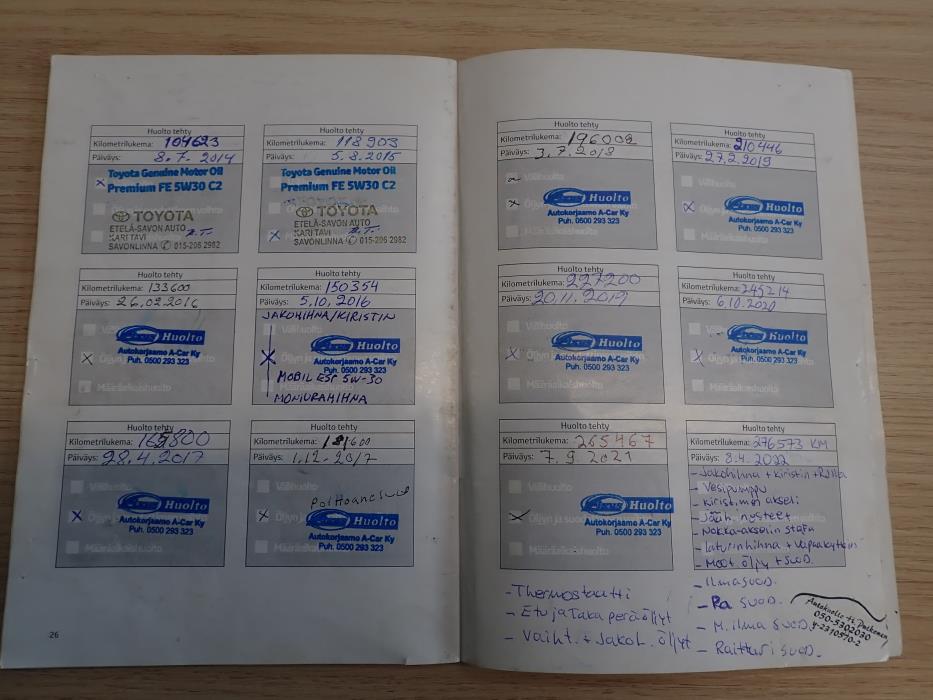 Huolto tehty
Kilometrilukema: 104623
Päiväys: 8.7. 2014
Toyota Genuine Motor Oil
Premium FE 5W30 C2
TOYOTA
ETELÄ-SAVON AUTO
KARI TAVI
SAVONLINNA 015-206 2982
Huolto tehty
Kilometrilukema: 118903
Päiväys: 5.8.2015
Toyota Genuine Motor Oil
Premium FE 5W30 C2
TOYOTA
ETELÄ-SAVON AUTO
KARI TAVI
SAVONLINNA 015-206 2982
Huolto tehty
Kilometrilukema: 133600
Päiväys: 26.02.2016
Huolto
Autokorjaamo A-Car Ky
Puh. 0500 293 323
Määräaikaishuolto
Huolto tehty
Kilometrilukema: 150354
Päiväys: 5.10.2016
JAKOHIHNA/KIRISTIN
Välihuolto
Huolto
Autokorjaamo A-Car Ky
Puh. 0500 293 323
MOBIL ESP 5W-30
MONIURAHIHNA
Huolto tehty
Kilometrilukema: 165800
Päiväys: 28.4.2017
Välihuolto
Huolto
Autokorjaamo A-Car Ky
Puh. 0500 293 323
Määräaikaishuolto
Huolto tehty
Kilometrilukema: 181600
Päiväys: 1.12.2017
Välihuolto
Huolto
Autokorjaamo A-Car Ky
Puh. 0500 293 323
Määräaikaishuolto
26
Huolto tehty
Kilometrilukema: 196008
Päiväys: 3.7.2018
Välihuolto
Huolto
Autokorjaamo A-Car Ky
Puh. 0500 293 323
Määräaikaishuolto
Huolto tehty
Kilometrilukema: 210446
Päiväys: 27.2.2019
Välihuolto
Huolto
Autokorjaamo A-Car Ky
Puh. 0500 293 323
Määräaikaishuolto
Huolto tehty
Kilometrilukema: 227200
Päiväys: 20.11.2019
Välihuolto
Huolto
Autokorjaamo A-Car Ky
Puh. 0500 293 323
Määräaikaishuolto
Huolto tehty
Kilometrilukema: 245214
Päiväys: 6.10.2020
Välihuolto
Huolto
Autokorjaamo A-Car Ky
Puh. 0500 293 323
Määräaikaishuolto
Huolto tehty
Kilometrilukema: 265467
Päiväys: 7.9.2021
Välihuolto
Öljyn ja suod
Huolto
Autokorjaamo A-Car Ky
Puh. 0500 293 323
Määräaikaishuolto
Huolto tehty
Kilometrilukema: 276573 KM
Päiväys: 8.4.2022
- Jakohihna + kiristin + Rulla
- Vesipumppu
- kiristimen akseli
- Jääh. nesteet
- Nokka-akselin
- Laturinhihna +
- Moot. öljy + suod.
- Ilmasuod.
- Ra suod.
- M. ilma suod.
- Raittari suod.
- Thermostaatti
- Etu ja Taka peräöljyt
- Vaiht. + Jakol. öljyt
050-5302030
Y-2310570-2